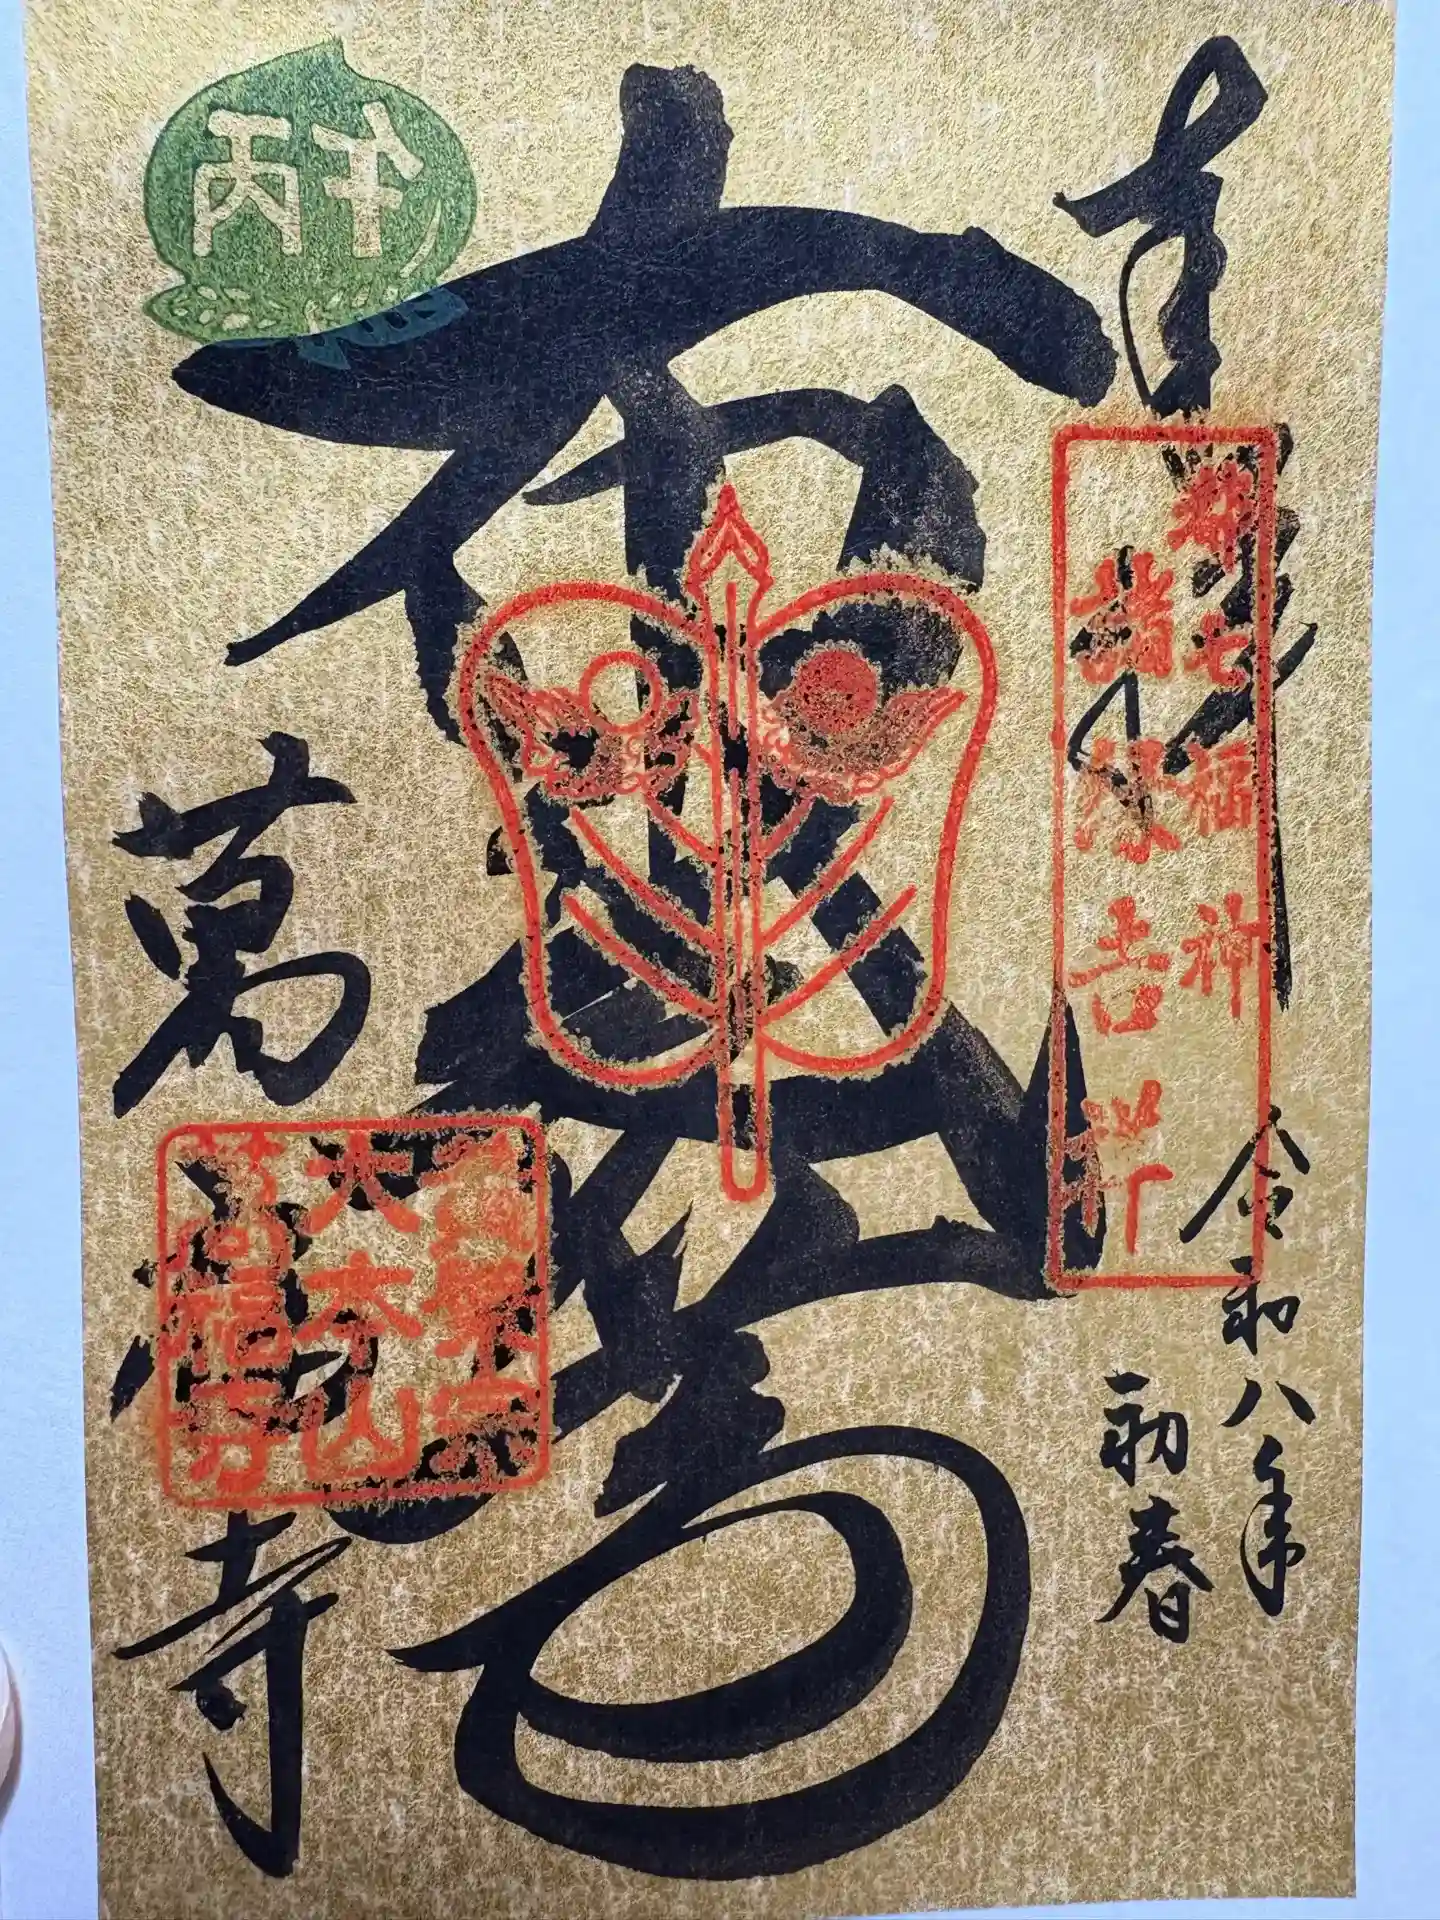 奉拝
都七福神
諸縁吉祥
令和八年
初春
布袋尊
丙午
萬福寺
黄檗宗
大本山
萬福寺